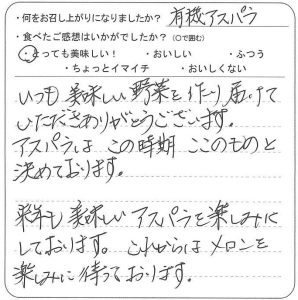 ・何をお召し上がりになりましたか？ 有機アスパラ
・食べたご感想はいかがでしたか？（○で囲む）
・とっても美味しい！ ・おいしい ・ふつう
・ちょっとイマイチ ・おいしくない
いつも美味しい野菜を作り届けて
いただきありがとうございます。
アスパラは この時期 ここのものと
決めております。
来年も 美味しい アスパラを楽しみに
しております。これからは メロンを
楽しみに 待っております。